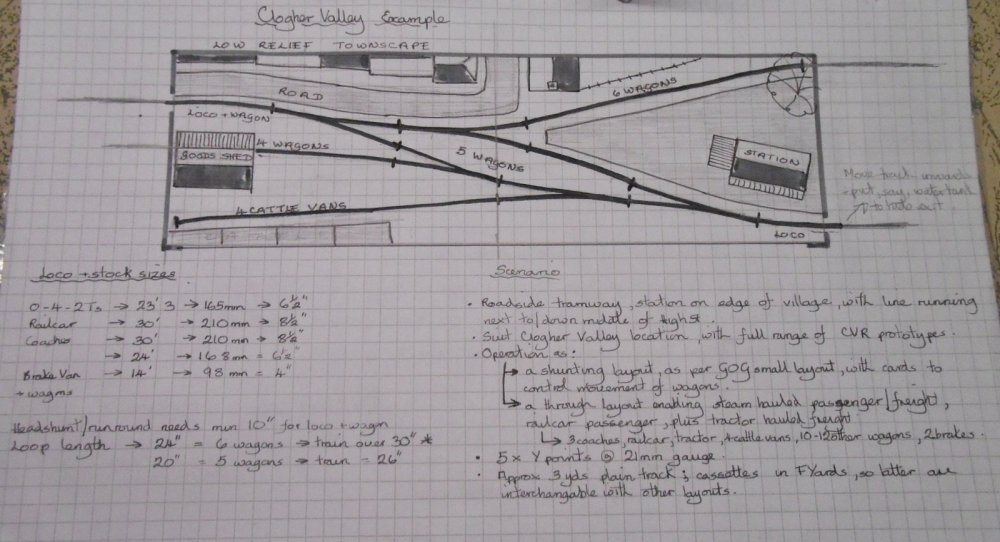 Clogher Valley Example
LOW RELIEF TOWNSCAPE
ROAD
6 WAGONS
LOCO + WAGON
4 WAGONS
GOODS SHED
5 WAGONS
STATION
4 CATTLE VANS
CATTLE
LOCO
Move track inwards
- put, say, water tank
to hide exit.
Loco + stock sizes
0-4-2Ts → 23' 3 → 165mm → 6½"
Railcar → 30' → 210mm → 8½"
Coaches → 30' → 210mm → 8½"
→ 24' → 168mm = 6½"
Brake Van → 14' → 98mm = 4"
+ wagons
Headshunt/runround needs min 10" for loco + wagon
Loop length → 24" = 6 wagons → train over 30" *
20" = 5 wagons → train = 26"
Scenario
• Roadside tramway, station on edge of village, with line running
next to/down middle of high st.
• Suit Clogher Valley location, with full range of CVR prototypes.
• Operation as:
→ a shunting layout, as per GOG small layout, with cards to
control movement of wagons.
→ a through layout enabling steam hauled passenger/freight,
railcar passenger, plus tractor hauled freight
↳ 3 coaches, railcar, tractor, 4 cattle vans, 10-12 other wagons, 2 brakes.
• 5 x Y points @ 21mm gauge.
• Approx 3 yds plain track; cassettes in F Yards, so latter are
interchangable with other layouts.